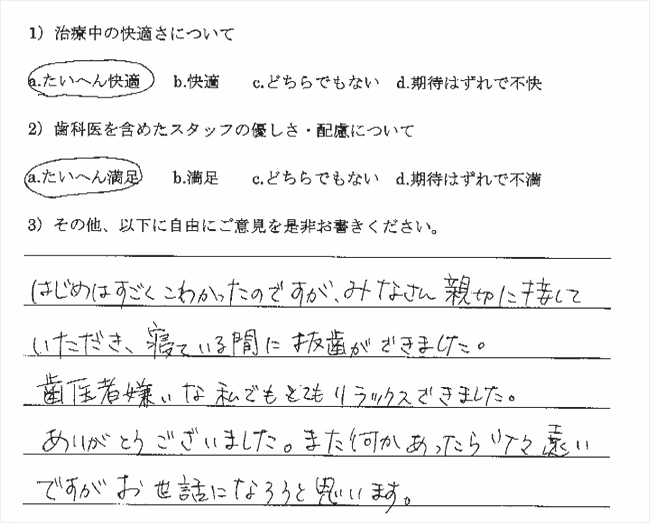 1）治療中の快適さについて
a.たいへん快適　b.快適　c.どちらでもない　d.期待はずれで不快
2）歯科医を含めたスタッフの優しさ・配慮について
a.たいへん満足　b.満足　c.どちらでもない　d.期待はずれで不満
3）その他、以下に自由にご意見を是非お書きください。
はじめはすごくこわかったのですが、みなさん親切に接して
いただき、寝ている間に抜歯ができました。
歯医者嫌いな私でもとてもリラックスできました。
ありがとうございました。また何かあったら少々遠い
ですがお世話になろうと思います。